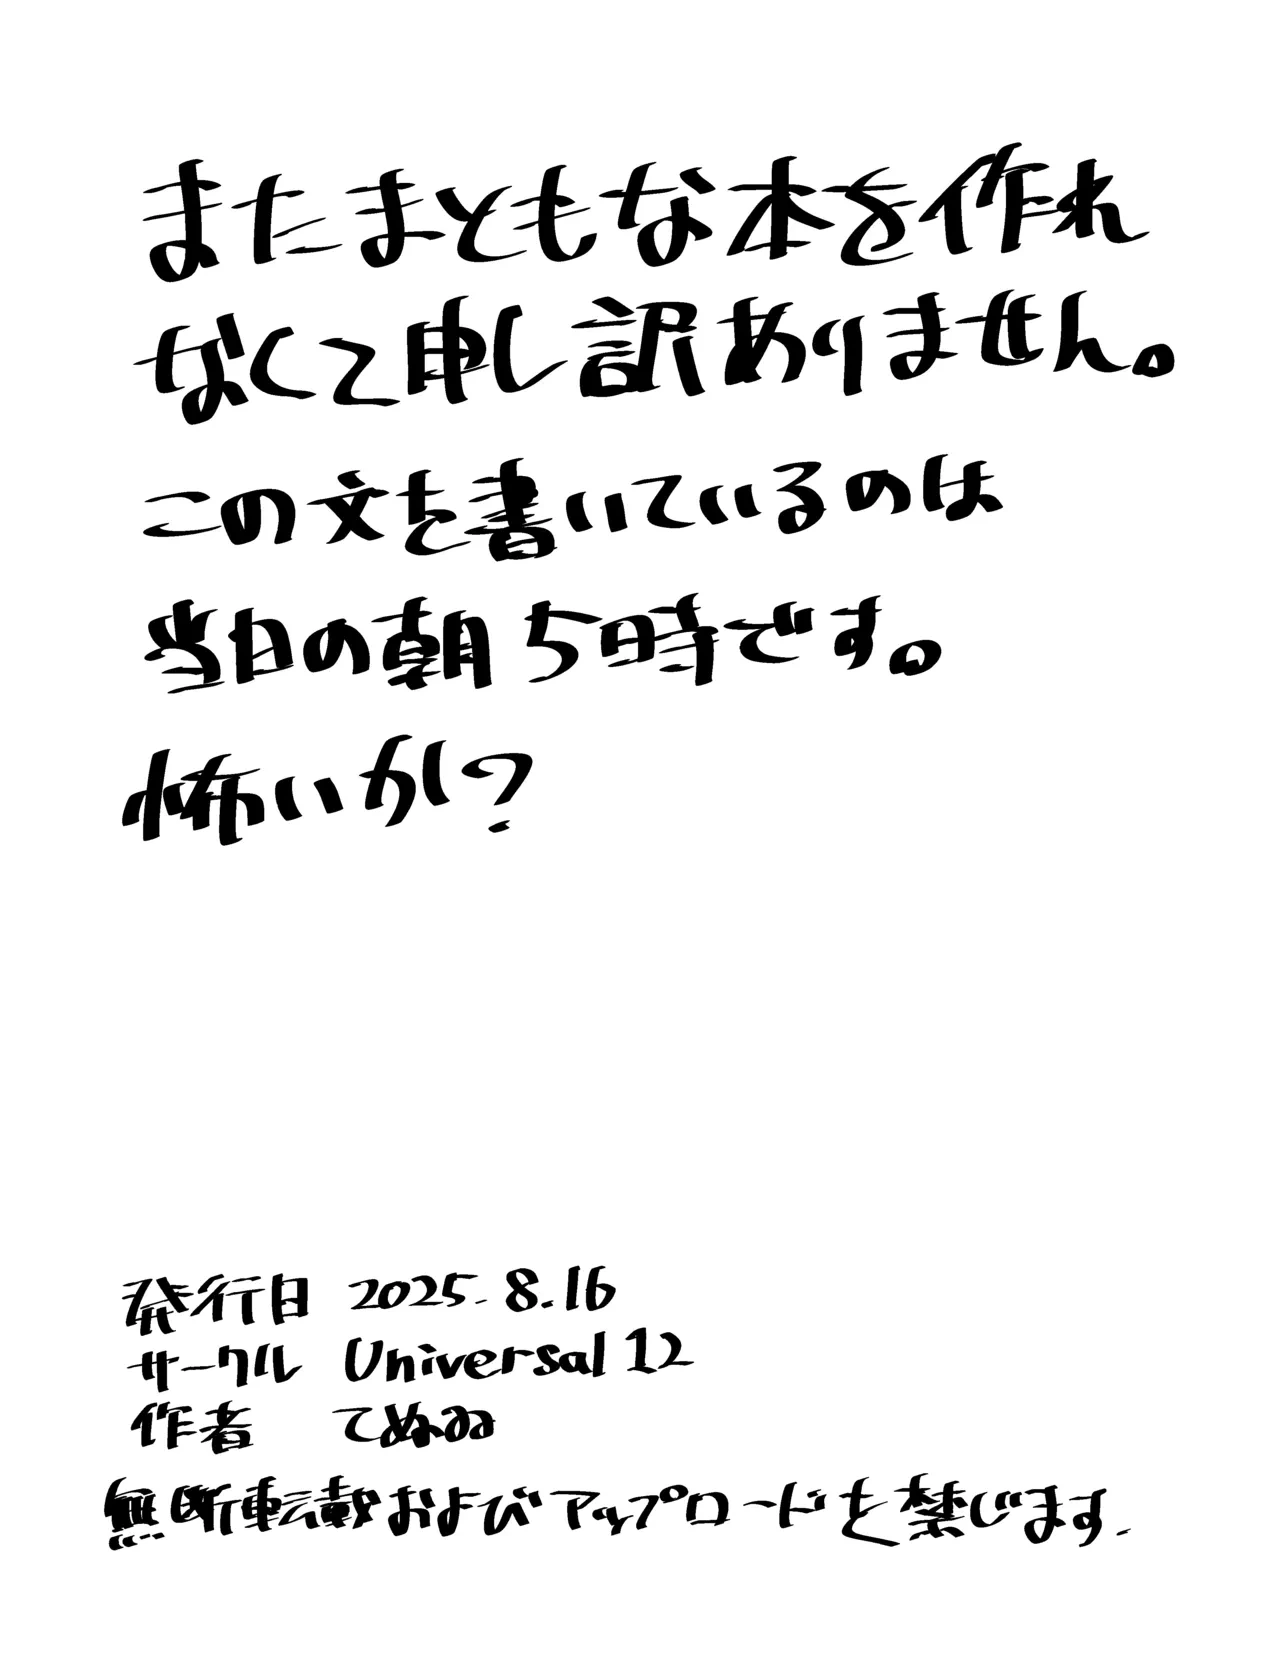 またまともな本を作れ
なくて申し訳ありません。
この文を書いているのは
当日の朝5時です。
怖いかい?
発行日 2025.8.16
サークル Universal 12
作者 てぬゐ
無断転載およびアップロードを禁じます.